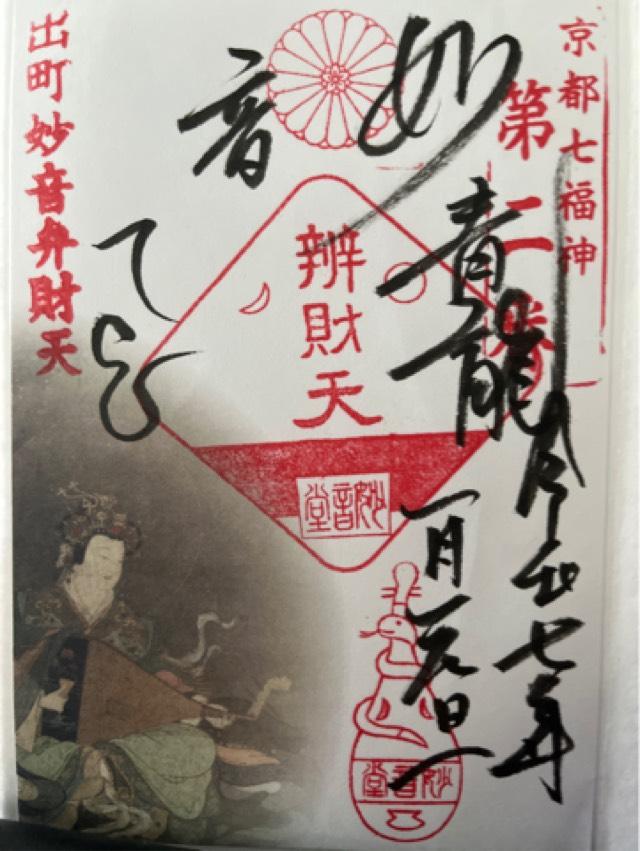 京都七福神
第二番
令和七年
一月元旦
青龍
妙音
辨財天
妙音堂
妙音堂
出町妙音弁財天